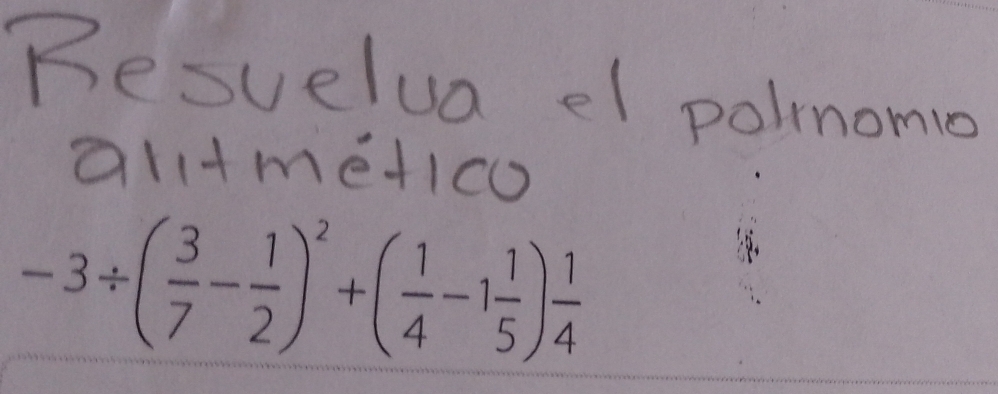 Resuelva el polinomio
aritmético
-3÷(3/7 - 1/2)² + (1/4 - 1 1/5) 1/4